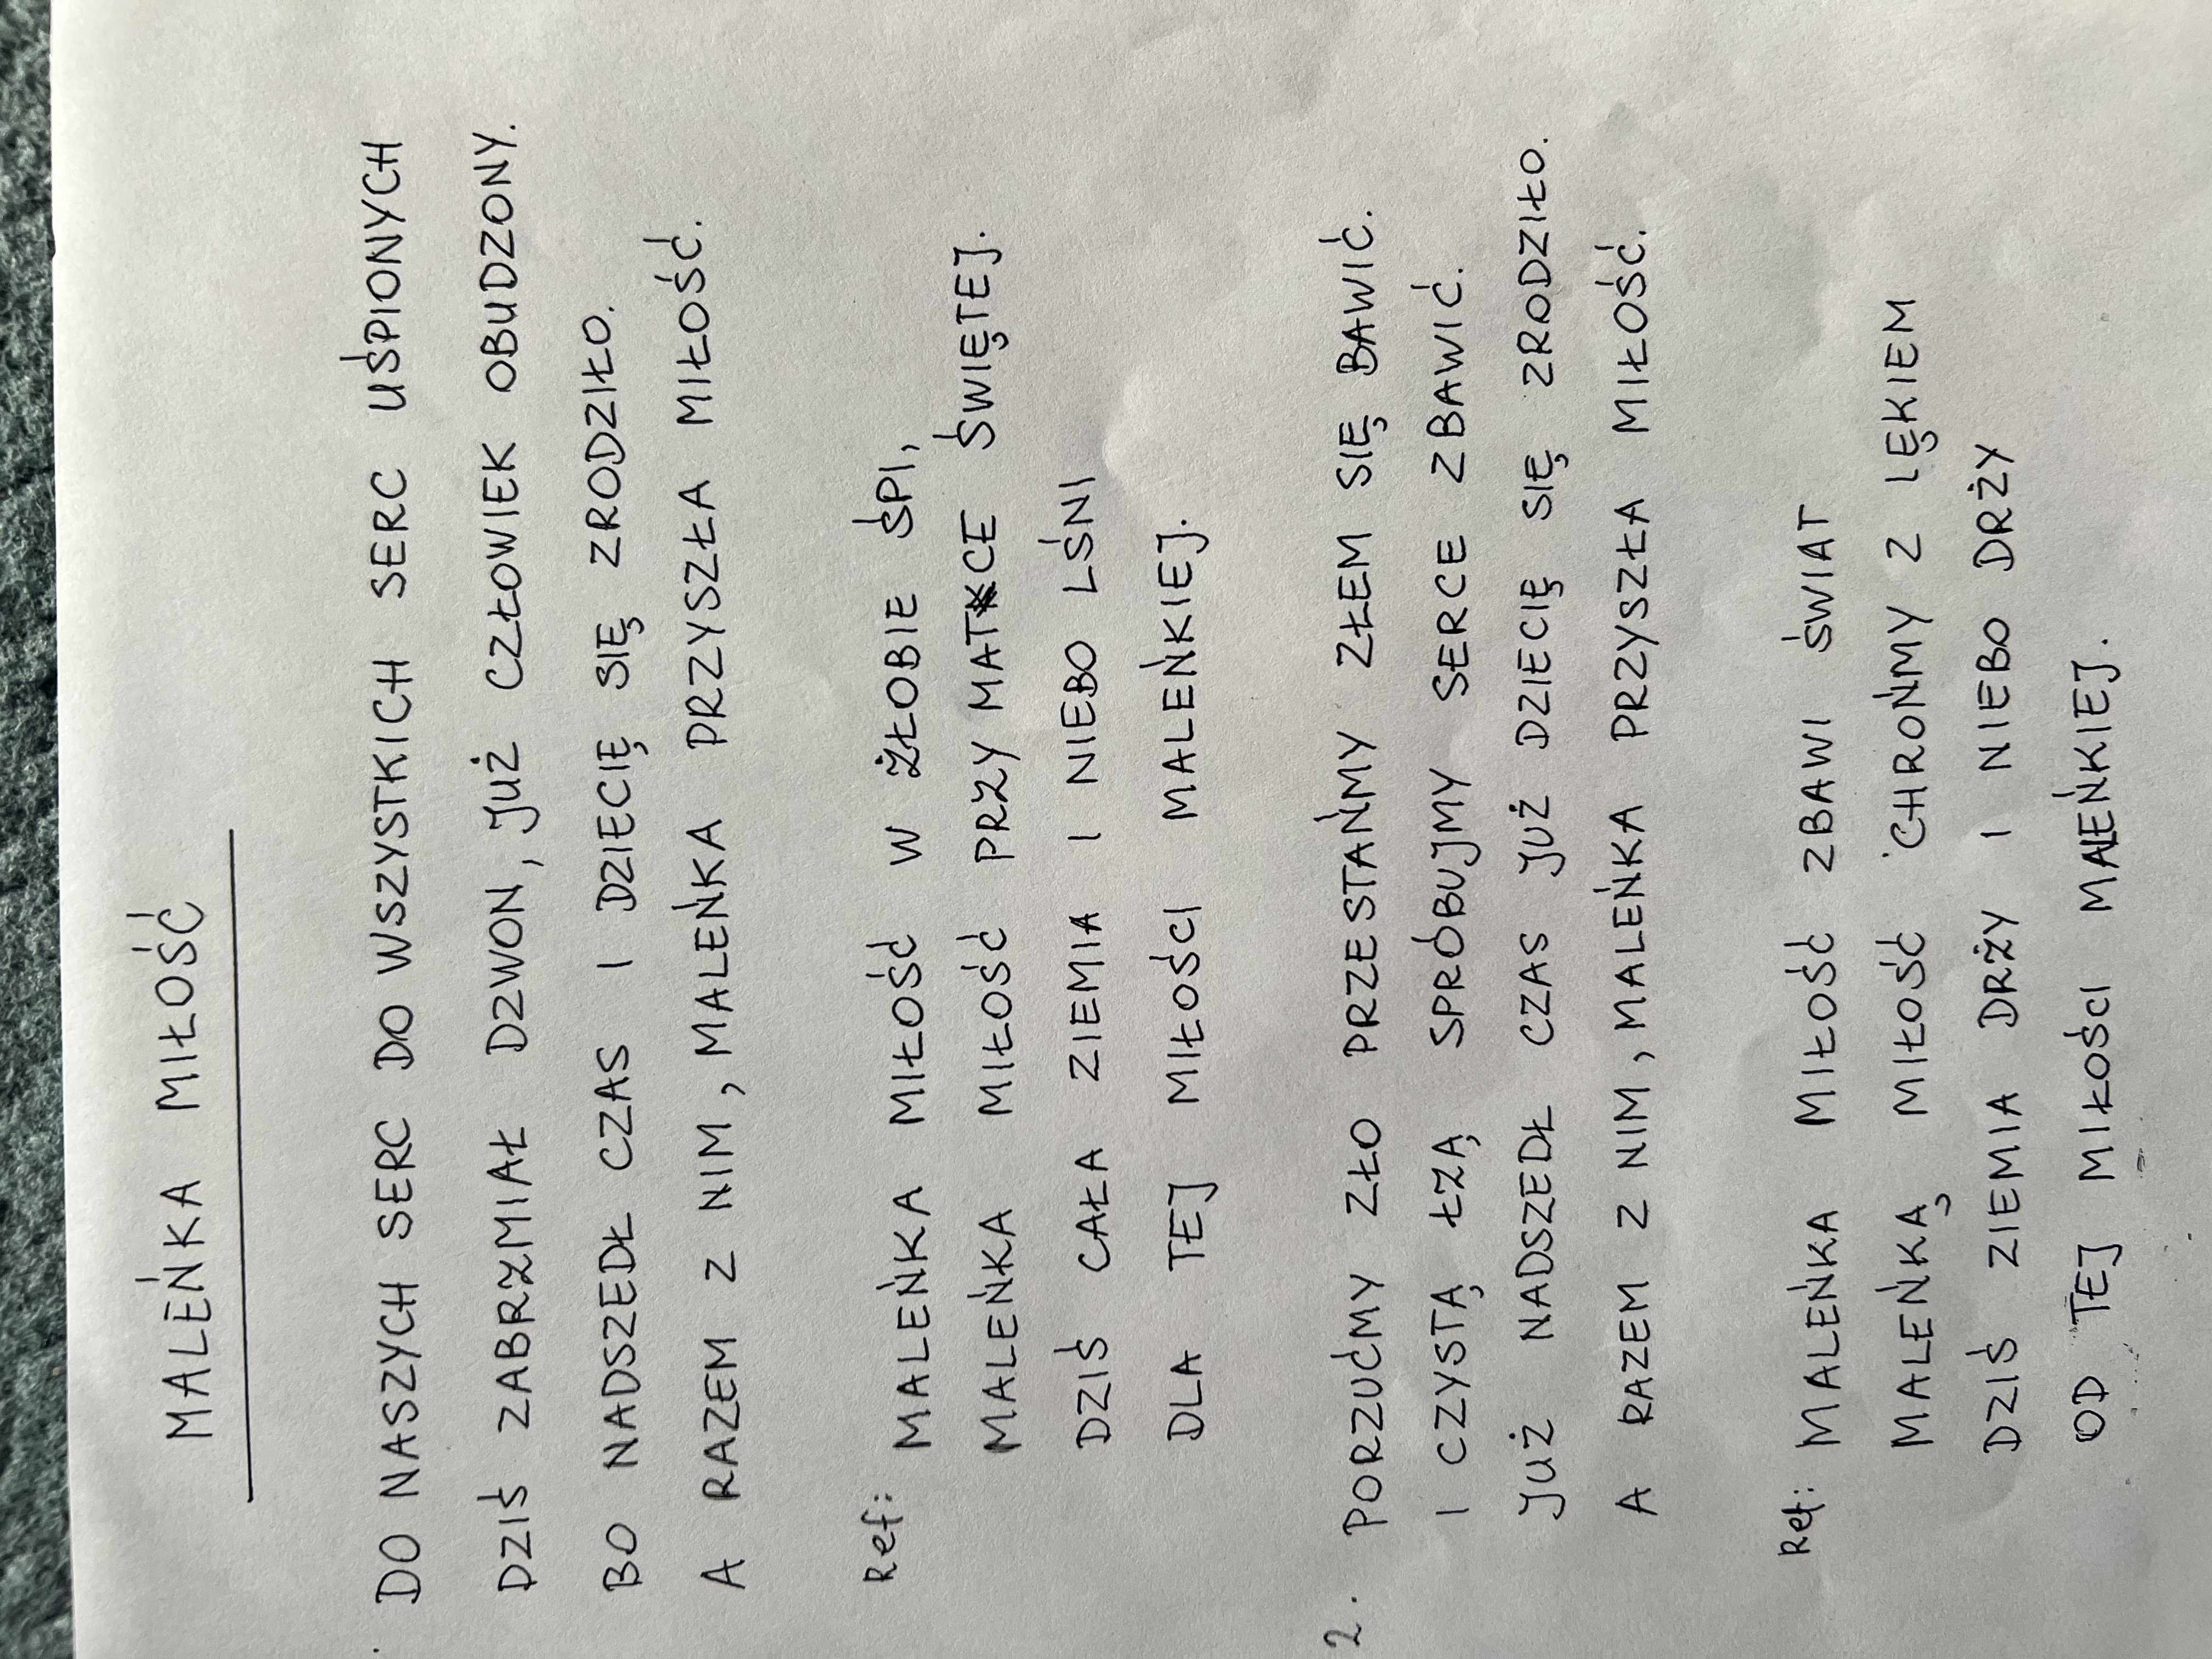 MALEŃKA MIŁOŚĆ
. DO NASZYCH SERC DO WSZYSTKICH SERC UŚPIONYCH
DZIŚ ZABRZMIAŁ DZWON, JUŻ CZŁOWIEK OBUDZONY.
BO NADSZEDŁ CZAS I DZIECIĘ SIĘ ZRODZIŁO.
A RAZEM Z NIM, MALEŃKA PRZYSZŁA MIŁOŚĆ.
Ref: MALEŃKA MIŁOŚĆ W ŻŁOBIE ŚPI,
MALEŃKA MIŁOŚĆ PRZY MATCE ŚWIĘTEJ.
DZIŚ CAŁA ZIEMIA I NIEBO LŚNI
DLA TEJ MIŁOŚCI MALEŃKIEJ.
2. PORZUĆMY ZŁO PRZESTAŃMY ZŁEM SIĘ BAWIĆ.
I CZYSTĄ ŁZĄ SPRÓBUJMY SERCE ZBAWIĆ.
JUŻ NADSZEDŁ CZAS JUŻ DZIECIĘ SIĘ ZRODZIŁO.
A RAZEM Z NIM, MALEŃKA PRZYSZŁA MIŁOŚĆ.
Ref: MALEŃKA MIŁOŚĆ ZBAWI ŚWIAT
MALEŃKĄ MIŁOŚĆ CHROŃMY Z LĘKIEM
DZIŚ ZIEMIA DRŻY I NIEBO DRŻY
OD TEJ MIŁOŚCI MALEŃKIEJ.